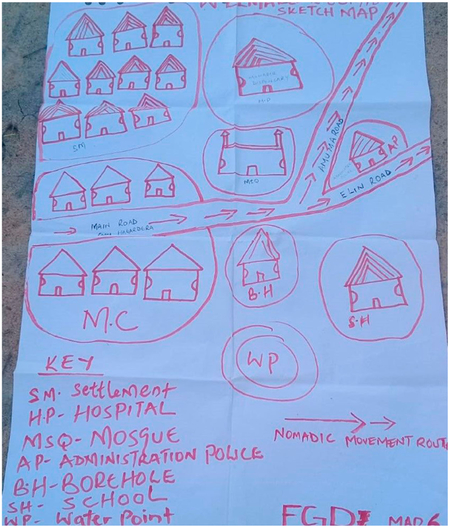 SKETCH MAP
SM
HP
MSQ
AMUMA ROAD
AP
ELIN ROAD
MAIN ROAD
FROM HAGARDERA
M.C
B.H
S.H
WP
KEY
SM- Settlement
HP- HOSPITAL
MSQ- MOSQUE
AP- ADMINISTRATION POLICE
BH- BOREHOLE
SH- SCHOOL
WP- Water Point
NOMADIC MOVEMENT ROUT
FGD
MAP